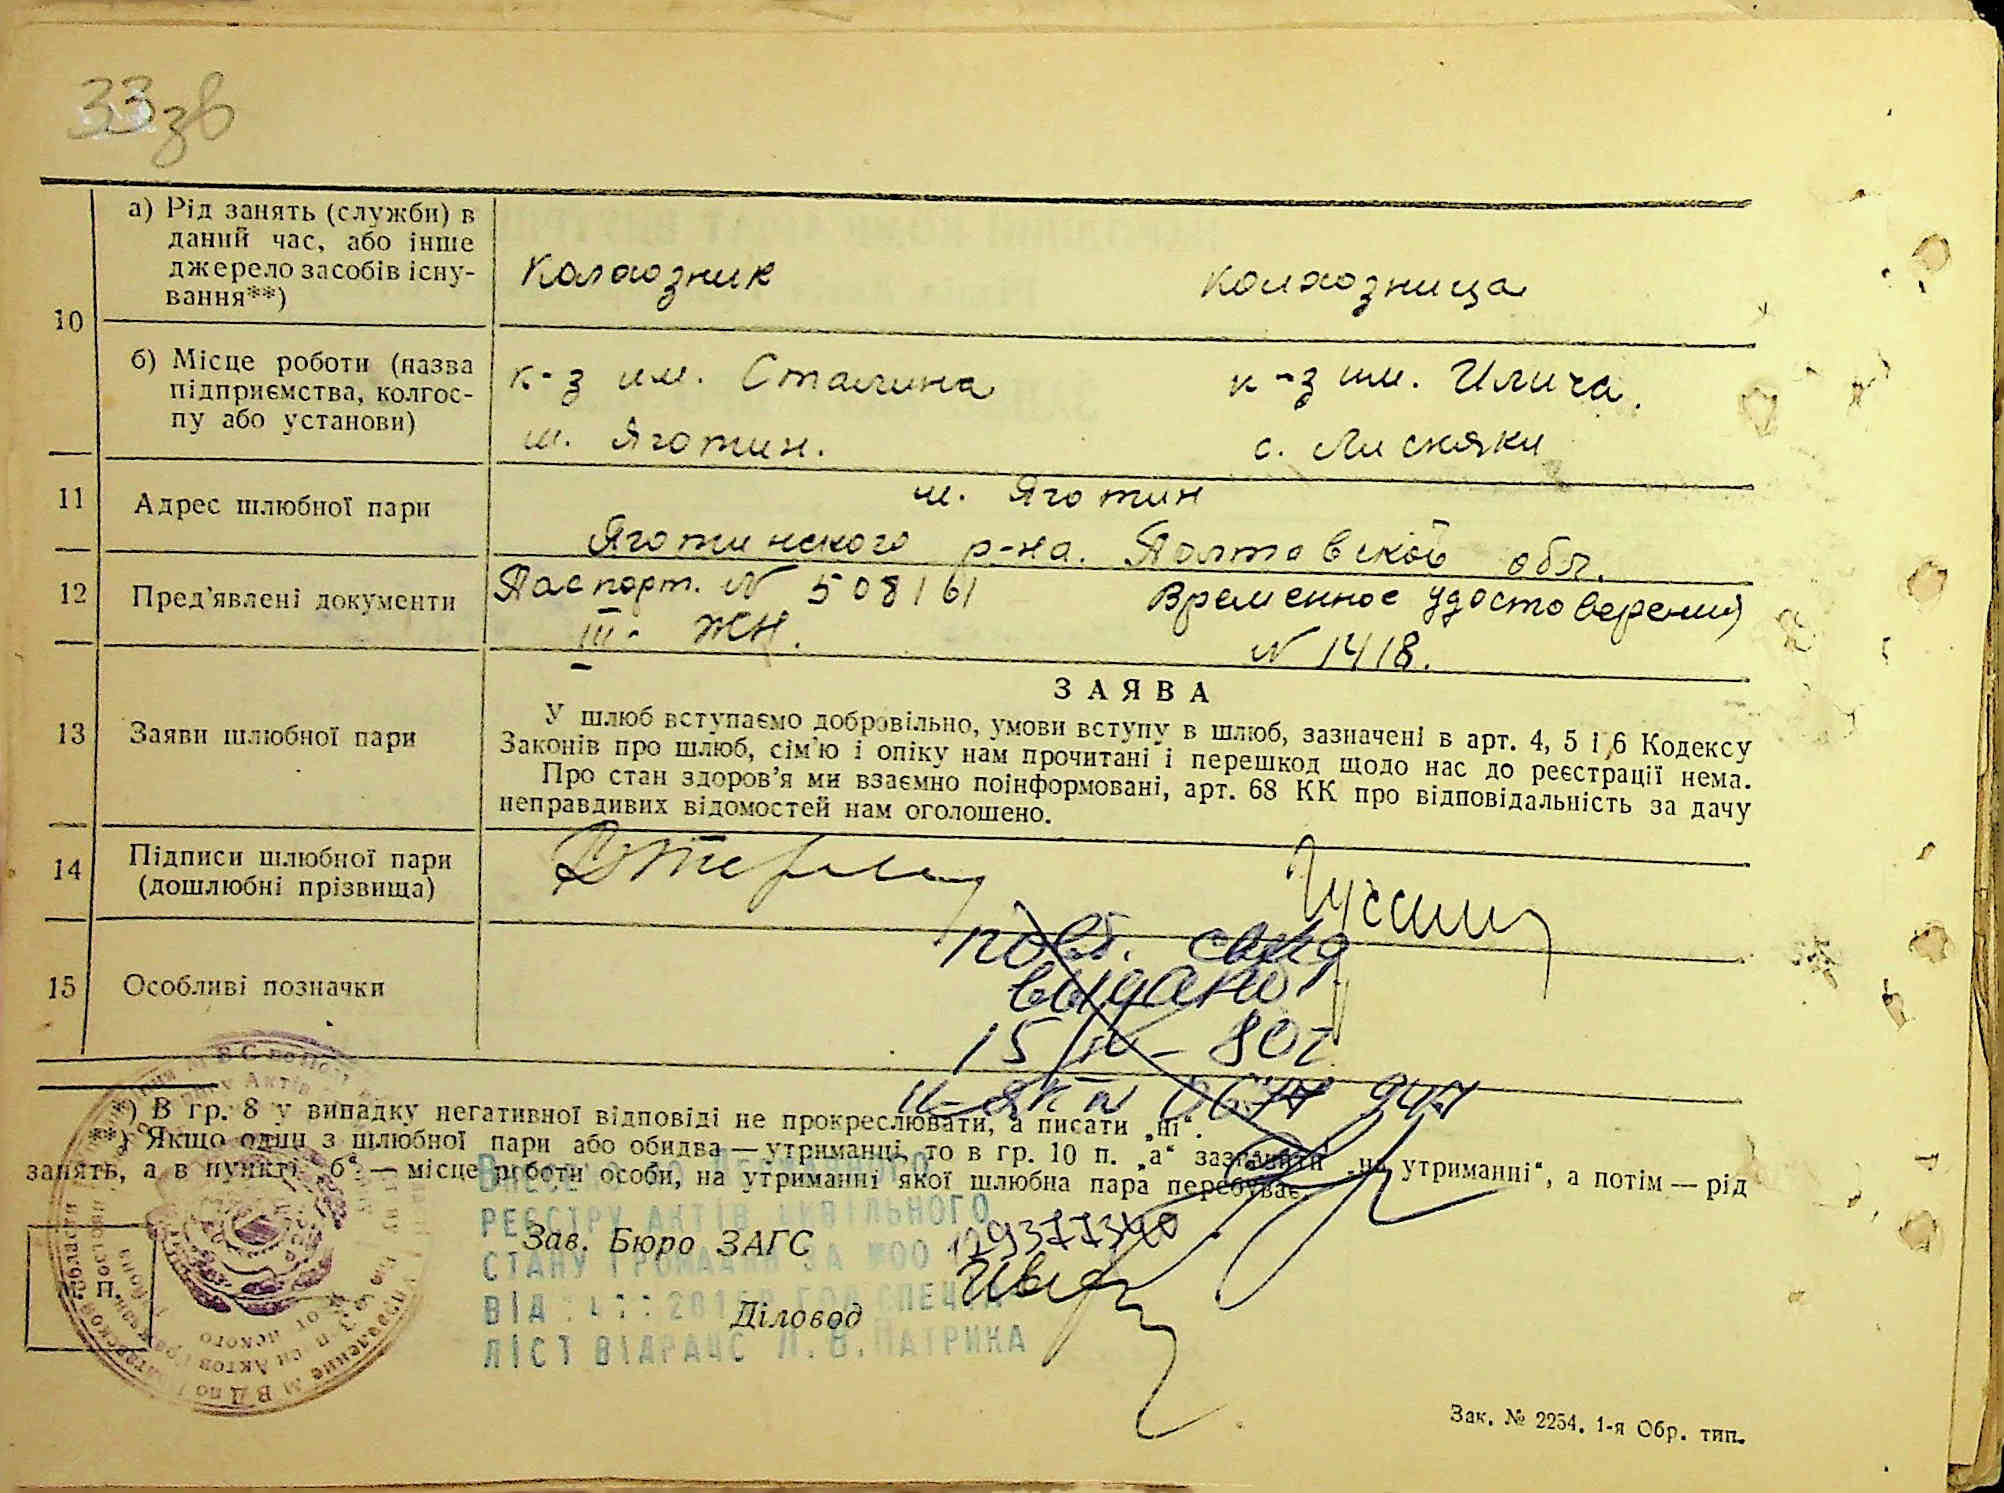 33 зв
10
а) Рід занять (служби) в
даний час, або інше
джерело засобів існу-
вання**)
Колхозник
колхозница
б) Місце роботи (назва
підприємства, колгос-
пу або установи)
к-з им. Сталина
м. Яготин.
к-з им. Илича.
с. Лисняки
11
Адрес шлюбної пари
м. Яготин
Яготинского р-на. Полтавской обл.
12
Пред'явлені документи
Паспорт. N 508161
III - ЖН.
Временное удостоверения
N 1418.
13
Заяви шлюбної пари
ЗАЯВА
У шлюб вступаємо добровільно, умови вступу в шлюб, зазначені в арт. 4, 5 і 6 Кодексу
Законів про шлюб, сім'ю і опіку нам прочитані і перешкод щодо нас до реєстрації нема.
Про стан здоров'я ми взаємно поінформовані, арт. 68 КК про відповідальність за дачу
неправдивих відомостей нам оголошено.
14
Підписи шлюбної пари
(дошлюбні прізвища)
15
Особливі позначки
повт. свид
выдано
15/IV - 80г
*) В гр. 8 у випадку негативної відповіді не прокреслювати, а писати „ні“.
**) Якщо один з шлюбної пари або обидва — утриманці, то в гр. 10 п. „а“ зазначити „на утриманні“, а потім — рід
занять, а в пункті „б“ — місце роботи особи, на утриманні якої шлюбна пара перебуває.
РЕЄСТРУ АКТІВ ЦИВІЛЬНОГО
СТАНУ ГРОМАДЯН ЗА №00 129377340
ЛІСТ ВІДРАЦС Л. В. ПАТРИКА
Зав. Бюро ЗАГС
Діловод
М. П.
Зак. № 2254. 1-я Обр. тип.